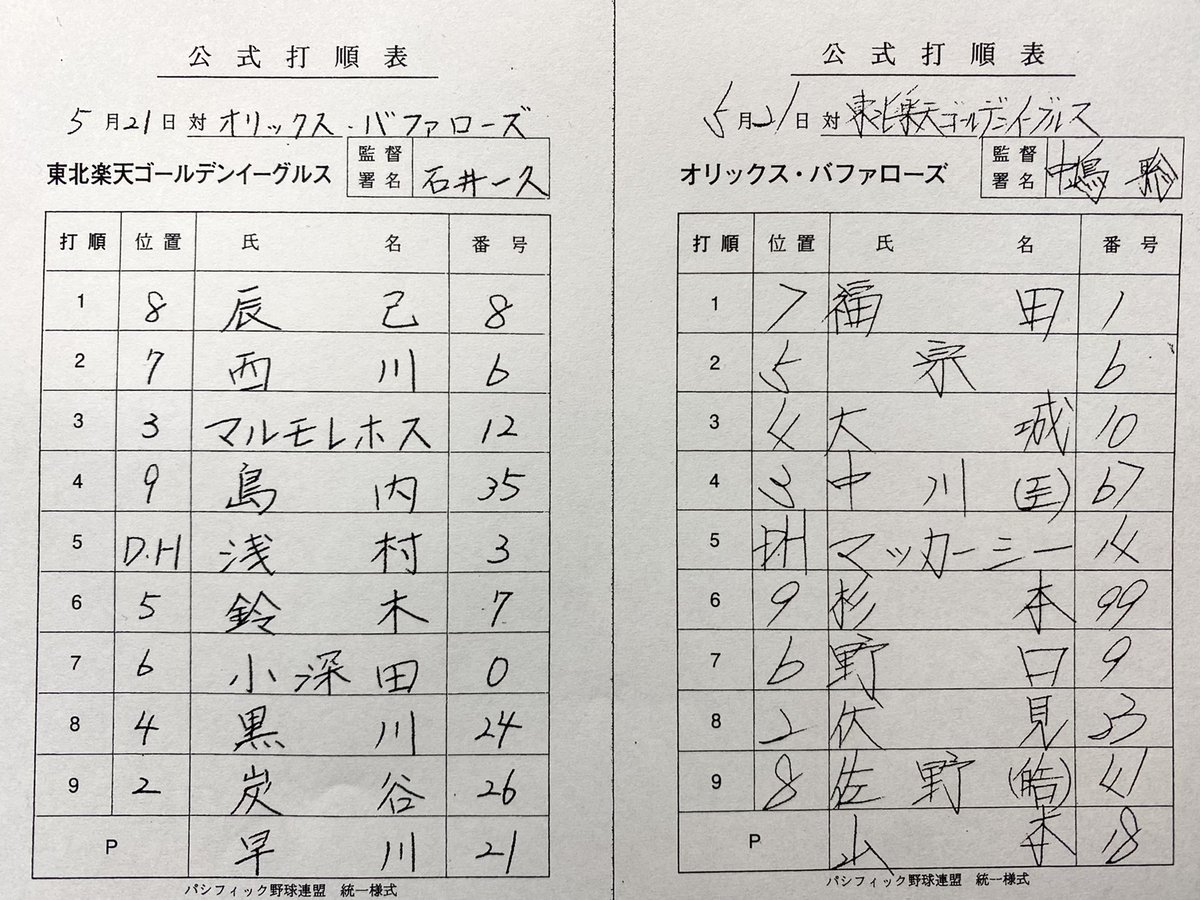 公式打順表
5月21日対オリックス・バファローズ
東北楽天ゴールデンイーグルス 監督署名 石井一久
打順 位置 氏名 番号
1 8 辰己 8
2 7 西川 6
3 3 マルモレホス 12
4 9 島内 35
5 D.H 浅村 3
6 5 鈴木 7
7 6 小深田 0
8 4 黒川 24
9 2 炭谷 26
P 早川 21
パシフィック野球連盟 統一様式
公式打順表
5月21日対東北楽天ゴールデンイーグルス
オリックス・バファローズ 監督署名 中嶋聡
打順 位置 氏名 番号
1 7 福田 1
2 5 宗 6
3 4 大城 10
4 3 中川(圭) 67
5 DH マッカーシー 14
6 9 杉本 99
7 6 野口 9
8 2 伏見 23
9 8 佐野(皓) 41
P 山本 18
パシフィック野球連盟 統一様式